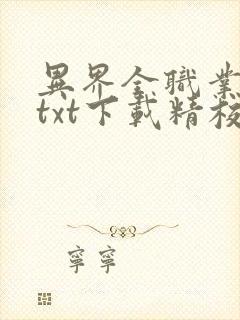 異界全職業
txt下載精校
寧寧